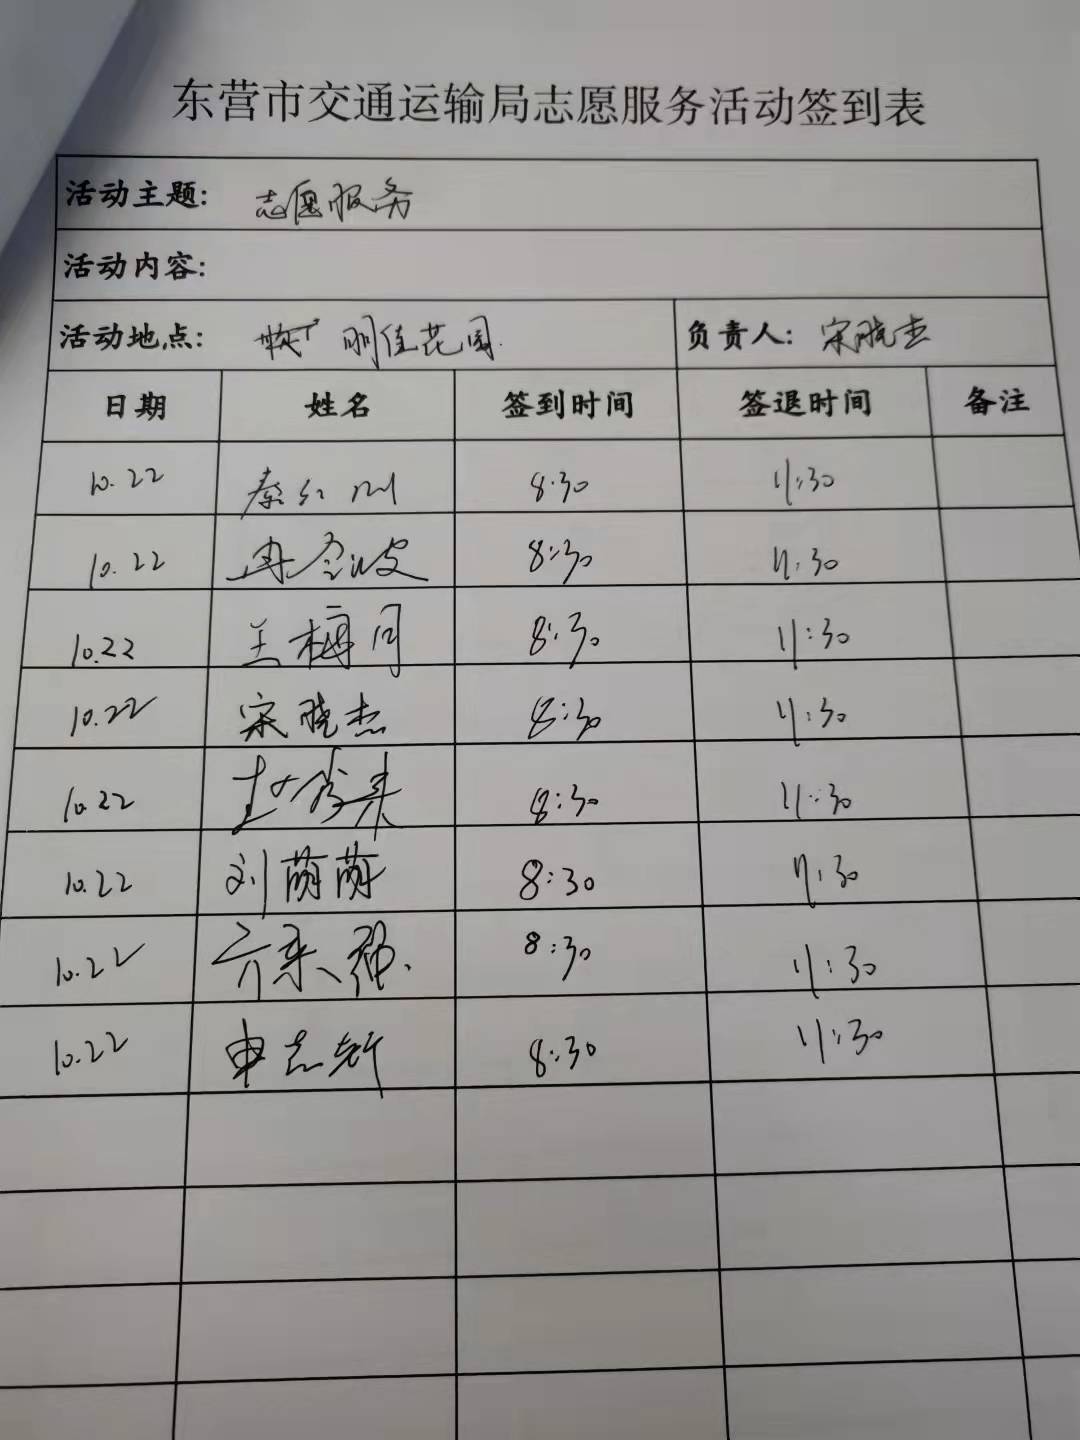 东营市交通运输局志愿服务活动签到表
活动主题: 志愿服务
活动内容:
活动地点: 明佳花园 负责人: 宋晓杰
日期 姓名 签到时间 签退时间 备注
10.22 秦红 8:30 11:30
10.22 冉令波 8:30 11:30
10.22 王梅月 8:30 11:30
10.22 宋晓杰 8:30 11:30
10.22 8:30 11:30
10.22 刘萌萌 8:30 11:30
10.22 8:30 11:30
10.22 申志新 8:30 11:30